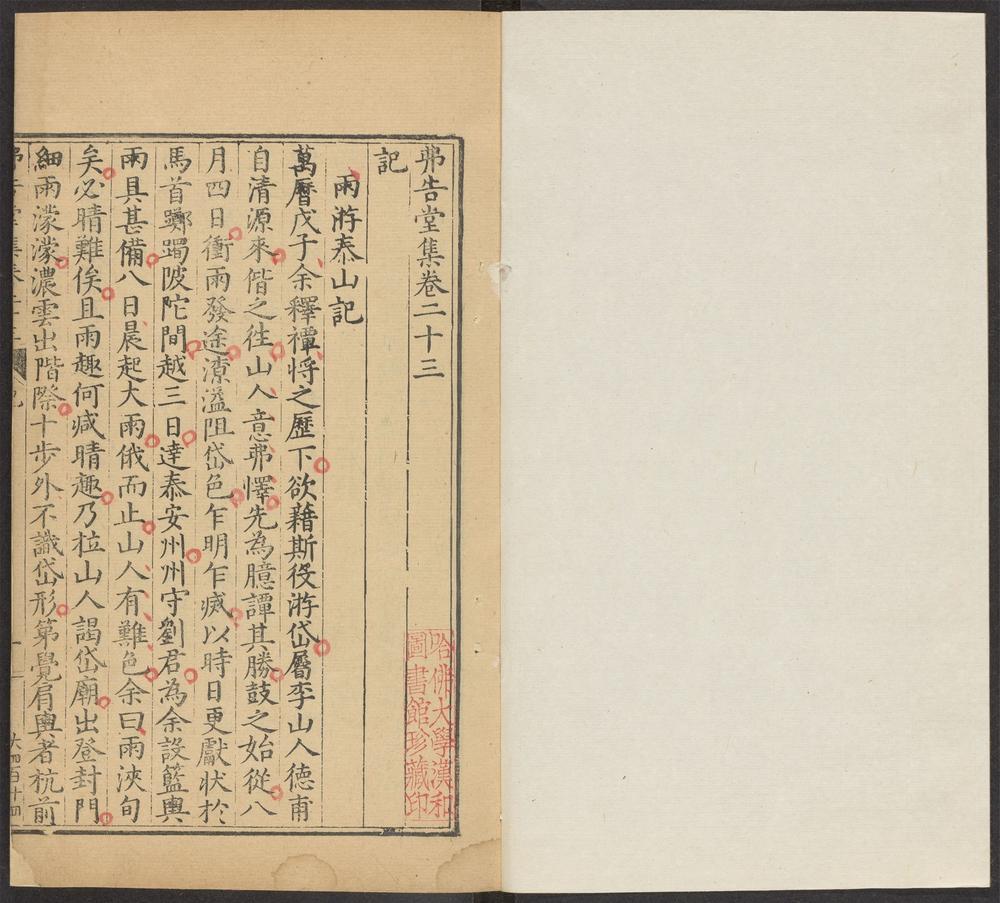 弗告堂集卷二十三
記
雨游泰山記
萬曆戊子余釋禫將之歷下欲藉斯役游岱屬李山人德甫
自清源來偕之徃山人意弗懌先為臆譚其勝鼓之始從八
月四日衝雨發途潦溢阻岱色乍明乍滅以時日更獻狀於
馬首躑躅陂陀間越三日達泰安州州守劉君為余設籃輿
雨具甚備八日晨起大雨俄而止山人有難色余曰雨浹旬
矣必晴難俟且雨趣何減晴趣乃拉山人謁岱廟出登封門
細雨濛濛濃雲出階際十步外不識岱形第覺肩輿者杭前
大四百十四
哈佛大學漢和
圖書館珍藏印